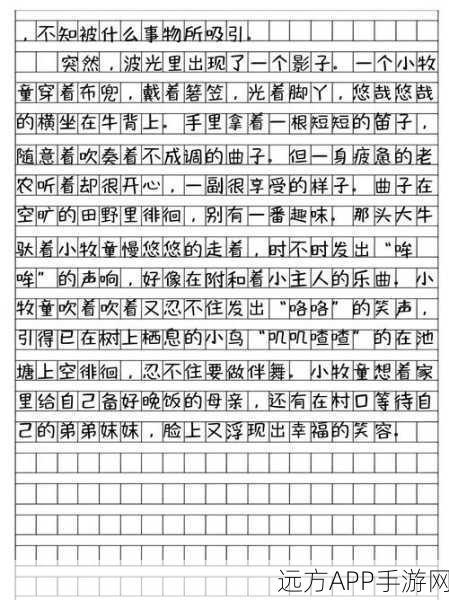 ，不知被什么事物所吸引。
突然，波光里出现了一个影子。一个小牧
童穿着布兜，戴着箬笠，光着脚丫，悠哉悠哉
的横坐在牛背上。手里拿着一根短短的笛子，
随意着吹奏着不成调的曲子。但一身疲惫的老
农听着却很开心，一副很享受的样子。曲子在
空旷的田野里徘徊，别有一番趣味。那头大牛
驮着小牧童慢悠悠的走着，时不时发出“哞
哞”的声响，好像在附和着小主人的乐曲。小
牧童吹着吹着又忍不住发出“咯咯”的笑声，
引得已在树上栖息的小鸟“叽叽喳喳”的在池
塘上空徘徊，忍不住要做伴舞。小牧童想着家
里给自己备好晚饭的母亲，还有在村口等待自
己的弟弟妹妹，脸上又浮现出幸福的笑容。
远方APP手游网